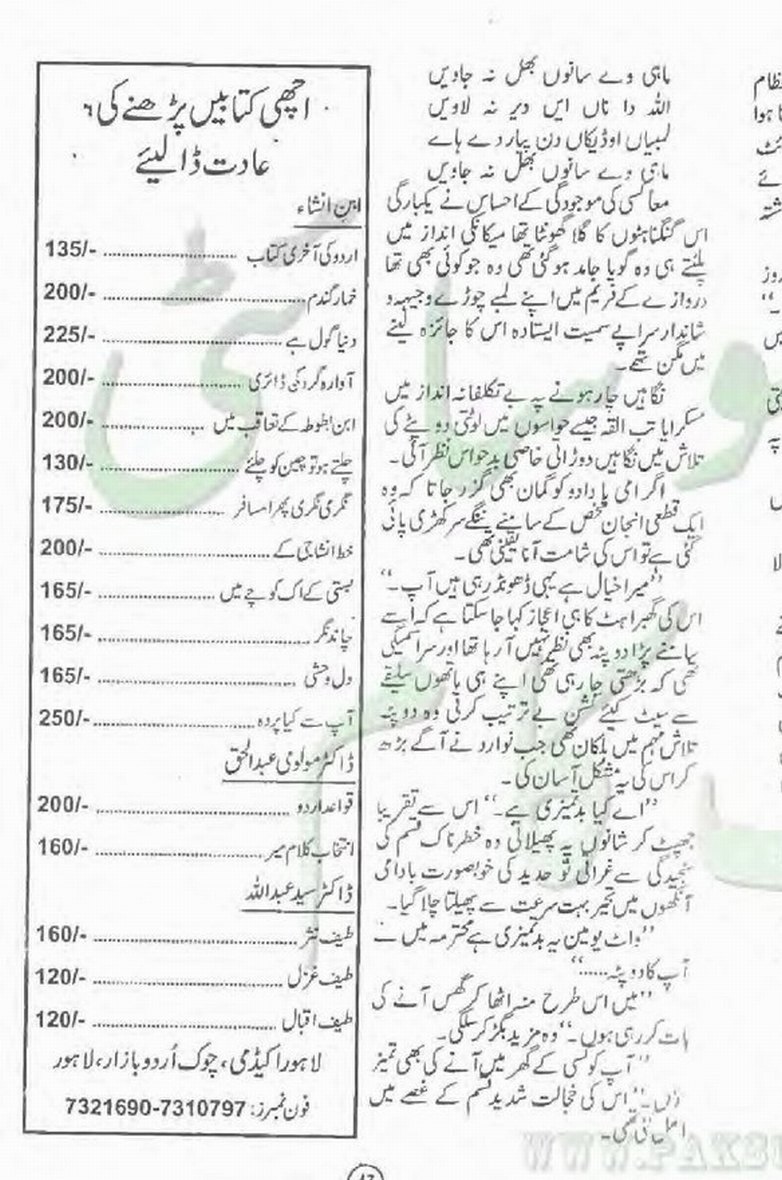 ماہی وے سانوں بھل نہ جاویں
اللہ دا ناں ایں دیر نہ لاویں
لمبیاں اوڈیکاں دن چار دے ہائے
ماہی وے سانوں بھل نہ جاویں
معاً کسی کی موجودگی کے احساس نے یکبارگی
اس گنگناہٹوں کا گلا گھونٹا تھا میکانکی انداز میں
پلٹتے ہی وہ گویا جامد ہوگئی تھی وہ جو کوئی بھی تھا
دروازے کے فریم میں اپنے لمبے چوڑے وجیہہ و
شاندار سراپے سمیت ایستادہ اس کا جائزہ لینے
میں مگن تھے۔
نگاہیں چار ہونے پہ بے تکلفانہ انداز میں
مسکرایا تب القہ جیسے حواسوں میں لوٹتی دوپٹے کی
تلاش میں نگاہیں دوڑاتی خاصی بدحواس نظر آئی۔
اگر امی یا دادو کو گمان بھی گزر جاتا کہ وہ
ایک قطعی انجان شخص کے سامنے ننگے سر کھڑی پائی
گئی ہے تو اس کی شامت آنا یقینی تھی۔
"میرا خیال ہے یہی ڈھونڈ رہی ہیں آپ۔"
اس کی گھبراہٹ کا ہی اعجاز کہا جاسکتا ہے کہ اسے
سامنے پڑا دوپٹہ بھی نظر نہیں آرہا تھا اور سراسمیگی
تھی کہ بڑھتی جارہی تھی اپنے ہی ہاتھوں سلیقے
سے سیٹ کیئے کشن بے ترتیب کرتی وہ دوپٹہ
تلاش مہم میں ہلکان تھی جب نووارد نے آگے بڑھ
کر اس کی یہ مشکل آسان کی۔
"اے کیا بدتمیزی ہے۔" اس سے تقریباً
جھپٹ کر شانوں پہ پھیلاتی وہ خطرناک قسم کی
سنجیدگی سے غرائی تو حدید کی خوبصورت بادامی
آنکھوں میں تحیر بہت سرعت سے پھیلتا چلا گیا۔
"واٹ یو مین یہ بدتمیزی ہے محترمہ میں نے
آپ کا دوپٹہ....."
"میں اس طرح منہ اٹھا کر گھس آنے کی
بات کررہی ہوں۔" وہ مزید بگڑ کر سلگی۔
"آپ کو کسی کے گھر میں آنے کی بھی تمیز
نہیں۔" اس کی خجالت شدید قسم کے غصے میں
تھی۔
اچھی کتابیں پڑھنے کی
عادت ڈالیئے
ابن انشاء
اردو کی آخری کتاب ........ 135/-
خمار گندم ........ 200/-
دنیا گول ہے ........ 225/-
آوارہ گرد کی ڈائری ........ 200/-
ابن بطوطہ کے تعاقب میں ........ 200/-
چلتے ہو تو چین کو چلئے ........ 130/-
نگری نگری پھرا مسافر ........ 175/-
خط انشا جی کے ........ 200/-
بستی کے اک کوچے میں ........ 165/-
چاند نگر ........ 165/-
دل وحشی ........ 165/-
آپ سے کیا پردہ ........ 250/-
ڈاکٹر مولوی عبدالحق
قواعد اردو ........ 200/-
انتخاب کلام میر ........ 160/-
ڈاکٹر سید عبداللہ
طیف نثر ........ 160/-
طیف غزل ........ 120/-
طیف اقبال ........ 120/-
لاہور اکیڈمی، چوک اُردو بازار، لاہور
فون نمبرز: 7310797-7321690